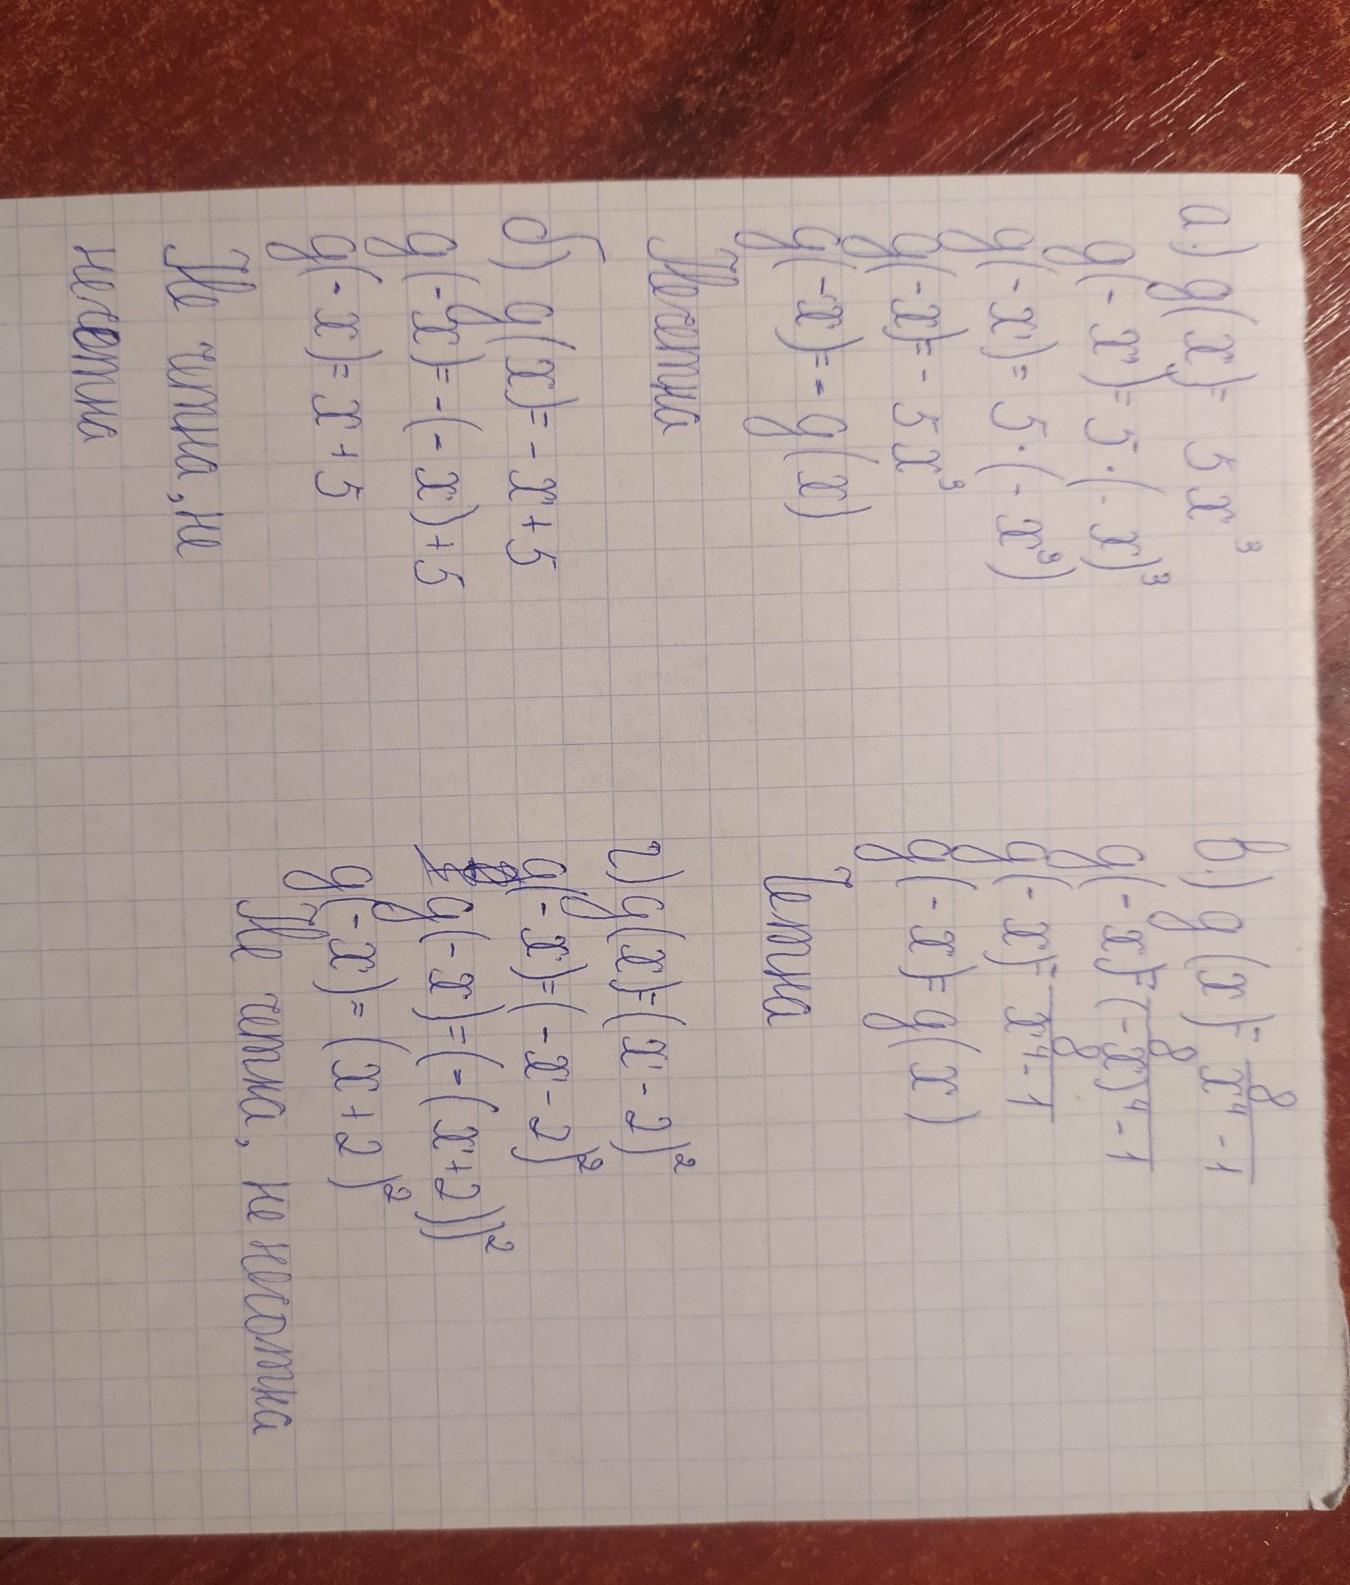 а.) g(x)= 5x³
g(-x)=5·(-x)³
g(-x)= 5·(-x³)
g(-x)= - 5x³
g(-x)= - g(x)
Нечетна
б) g(x)= - x+5
g(-x)= -(-x)+5
g(-x)= x+5
Не четна, не
нечетна
в.) g(x)= 8/(x⁴-1)
g(-x)= 8/((-x)⁴-1)
g(-x)= 8/(x⁴-1)
g(-x)= g(x)
Четна
г) g(x)=(x-2)²
g(-x)=(-x-2)²
g(-x)=(-(x+2))²
g(-x)=(x+2)²
Не четна, не нечотна